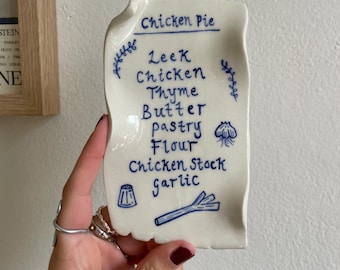 Chicken Pie
Leek
Chicken
Thyme
Butter
pastry
Flour
Chicken Stock
garlic